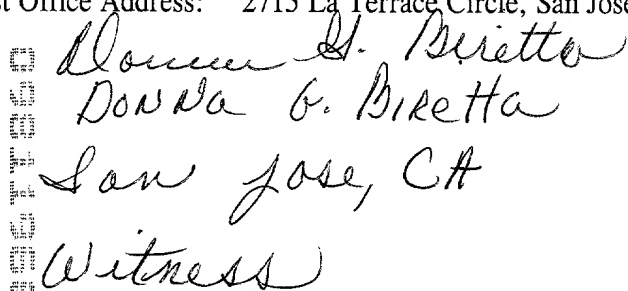 st Office Address: 2715 La Terrace Circle, San Jose
Donna G. Biretta
DONNA G. BIRETTA
San Jose, CA
Witness